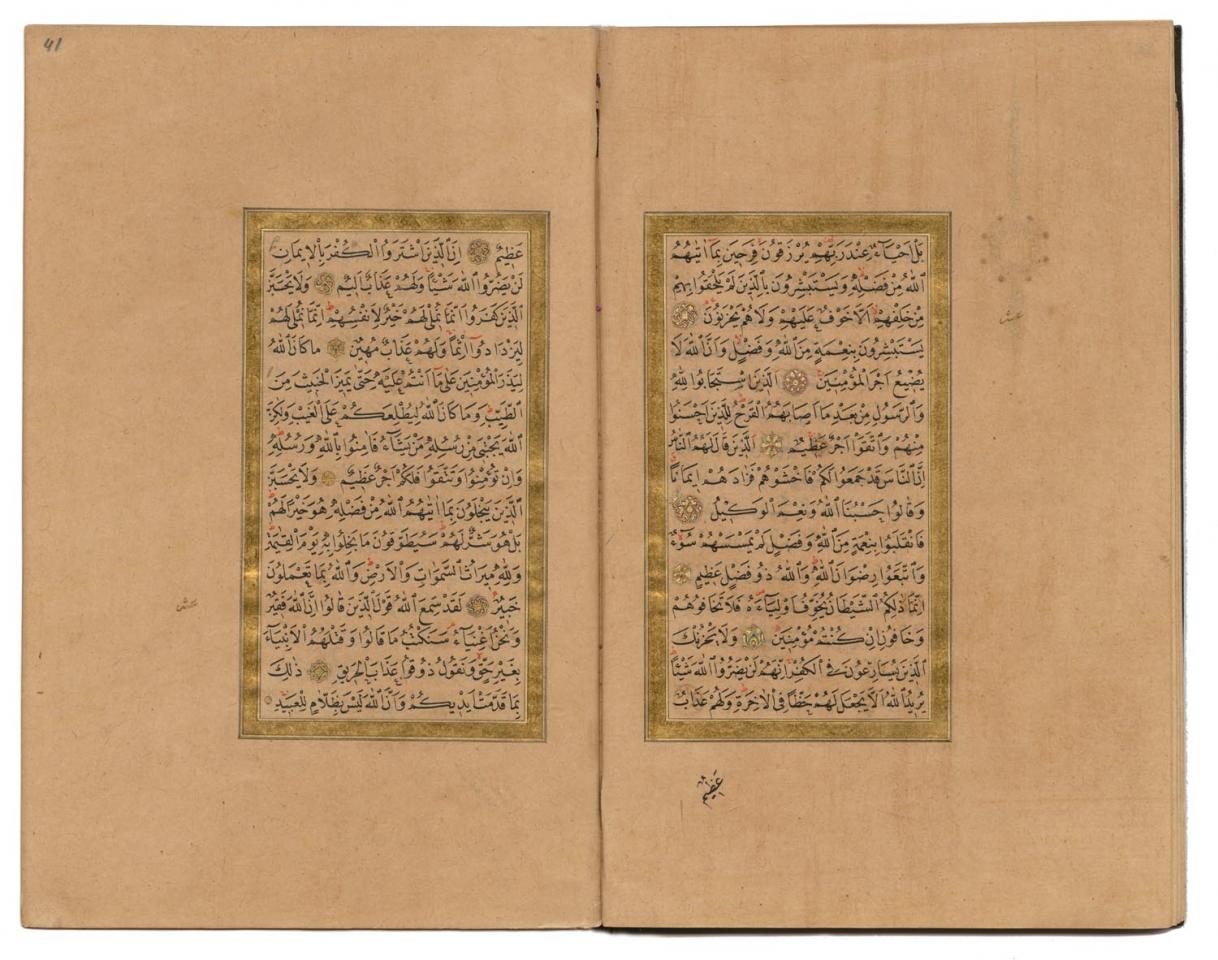 بَلْ اَحْيَاءٌ عِنْدَ رَبِّهِمْ يُرْزَقُونَ فَرِحِينَ بِمَا اٰتٰيهُمُ
اللّٰهُ مِنْ فَضْلِهٖ وَيَسْتَبْشِرُونَ بِالَّذِينَ لَمْ يَلْحَقُوا بِهِمْ
مِنْ خَلْفِهِمْ اَلَّا خَوْفٌ عَلَيْهِمْ وَلَا هُمْ يَحْزَنُونَ
يَسْتَبْشِرُونَ بِنِعْمَةٍ مِنَ اللّٰهِ وَفَضْلٍ وَاَنَّ اللّٰهَ لَا
يُضِيعُ اَجْرَ الْمُؤْمِنِينَ اَلَّذِينَ اسْتَجَابُوا لِلّٰهِ
وَالرَّسُولِ مِنْ بَعْدِ مَا اَصَابَهُمُ الْقَرْحُ لِلَّذِينَ اَحْسَنُوا
مِنْهُمْ وَاتَّقَوْا اَجْرٌ عَظِيمٌ اَلَّذِينَ قَالَ لَهُمُ النَّاسُ
اِنَّ النَّاسَ قَدْ جَمَعُوا لَكُمْ فَاخْشَوْهُمْ فَزَادَهُمْ اِيمَانًا
وَقَالُوا حَسْبُنَا اللّٰهُ وَنِعْمَ الْوَكِيلُ
فَانْقَلَبُوا بِنِعْمَةٍ مِنَ اللّٰهِ وَفَضْلٍ لَمْ يَمْسَسْهُمْ سُوءٌ
وَاتَّبَعُوا رِضْوَانَ اللّٰهِ وَاللّٰهُ ذُو فَضْلٍ عَظِيمٍ
اِنَّمَا ذٰلِكُمُ الشَّيْطَانُ يُخَوِّفُ اَوْلِيَاءَهُ فَلَا تَخَافُوهُمْ
وَخَافُونِ اِنْ كُنْتُمْ مُؤْمِنِينَ وَلَا يَحْزُنْكَ
الَّذِينَ يُسَارِعُونَ فِي الْكُفْرِ اِنَّهُمْ لَنْ يَضُرُّوا اللّٰهَ شَيْئًا
يُرِيدُ اللّٰهُ اَلَّا يَجْعَلَ لَهُمْ حَظًّا فِي الْاٰخِرَةِ وَلَهُمْ عَذَابٌ
عَظِيمٌ
عشر
41
عَظِيمٌ اِنَّ الَّذِينَ اشْتَرَوُا الْكُفْرَ بِالْاِيمَانِ
لَنْ يَضُرُّوا اللّٰهَ شَيْئًا وَلَهُمْ عَذَابٌ اَلِيمٌ وَلَا يَحْسَبَنَّ
الَّذِينَ كَفَرُوا اَنَّمَا نُمْلِي لَهُمْ خَيْرٌ لِاَنْفُسِهِمْ اِنَّمَا نُمْلِي لَهُمْ
لِيَزْدَادُوا اِثْمًا وَلَهُمْ عَذَابٌ مُهِينٌ مَا كَانَ اللّٰهُ
لِيَذَرَ الْمُؤْمِنِينَ عَلٰى مَا اَنْتُمْ عَلَيْهِ حَتّٰى يَمِيزَ الْخَبِيثَ مِنَ
الطَّيِّبِ وَمَا كَانَ اللّٰهُ لِيُطْلِعَكُمْ عَلَى الْغَيْبِ وَلٰكِنَّ
اللّٰهَ يَجْتَبِي مِنْ رُسُلِهٖ مَنْ يَشَاءُ فَاٰمِنُوا بِاللّٰهِ وَرُسُلِهٖ
وَاِنْ تُؤْمِنُوا وَتَتَّقُوا فَلَكُمْ اَجْرٌ عَظِيمٌ وَلَا يَحْسَبَنَّ
الَّذِينَ يَبْخَلُونَ بِمَا اٰتٰيهُمُ اللّٰهُ مِنْ فَضْلِهٖ هُوَ خَيْرًا لَهُمْ
بَلْ هُوَ شَرٌّ لَهُمْ سَيُطَوَّقُونَ مَا بَخِلُوا بِهٖ يَوْمَ الْقِيٰمَةِ
وَلِلّٰهِ مِيرَاثُ السَّمٰوَاتِ وَالْاَرْضِ وَاللّٰهُ بِمَا تَعْمَلُونَ
خَبِيرٌ لَقَدْ سَمِعَ اللّٰهُ قَوْلَ الَّذِينَ قَالُوا اِنَّ اللّٰهَ فَقِيرٌ
وَنَحْنُ اَغْنِيَاءُ سَنَكْتُبُ مَا قَالُوا وَقَتْلَهُمُ الْاَنْبِيَاءَ
بِغَيْرِ حَقٍّ وَنَقُولُ ذُوقُوا عَذَابَ الْحَرِيقِ ذٰلِكَ
بِمَا قَدَّمَتْ اَيْدِيكُمْ وَاَنَّ اللّٰهَ لَيْسَ بِظَلَّامٍ لِلْعَبِيدِ
عشر